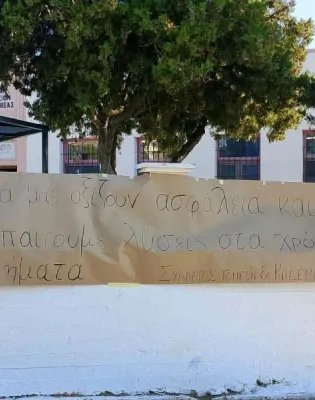 α μας αξίζουν ασφάλεια και
παιτούμε λύσεις στα χρό
ήματα Σύλλογος Γονέων & Κηδεμό